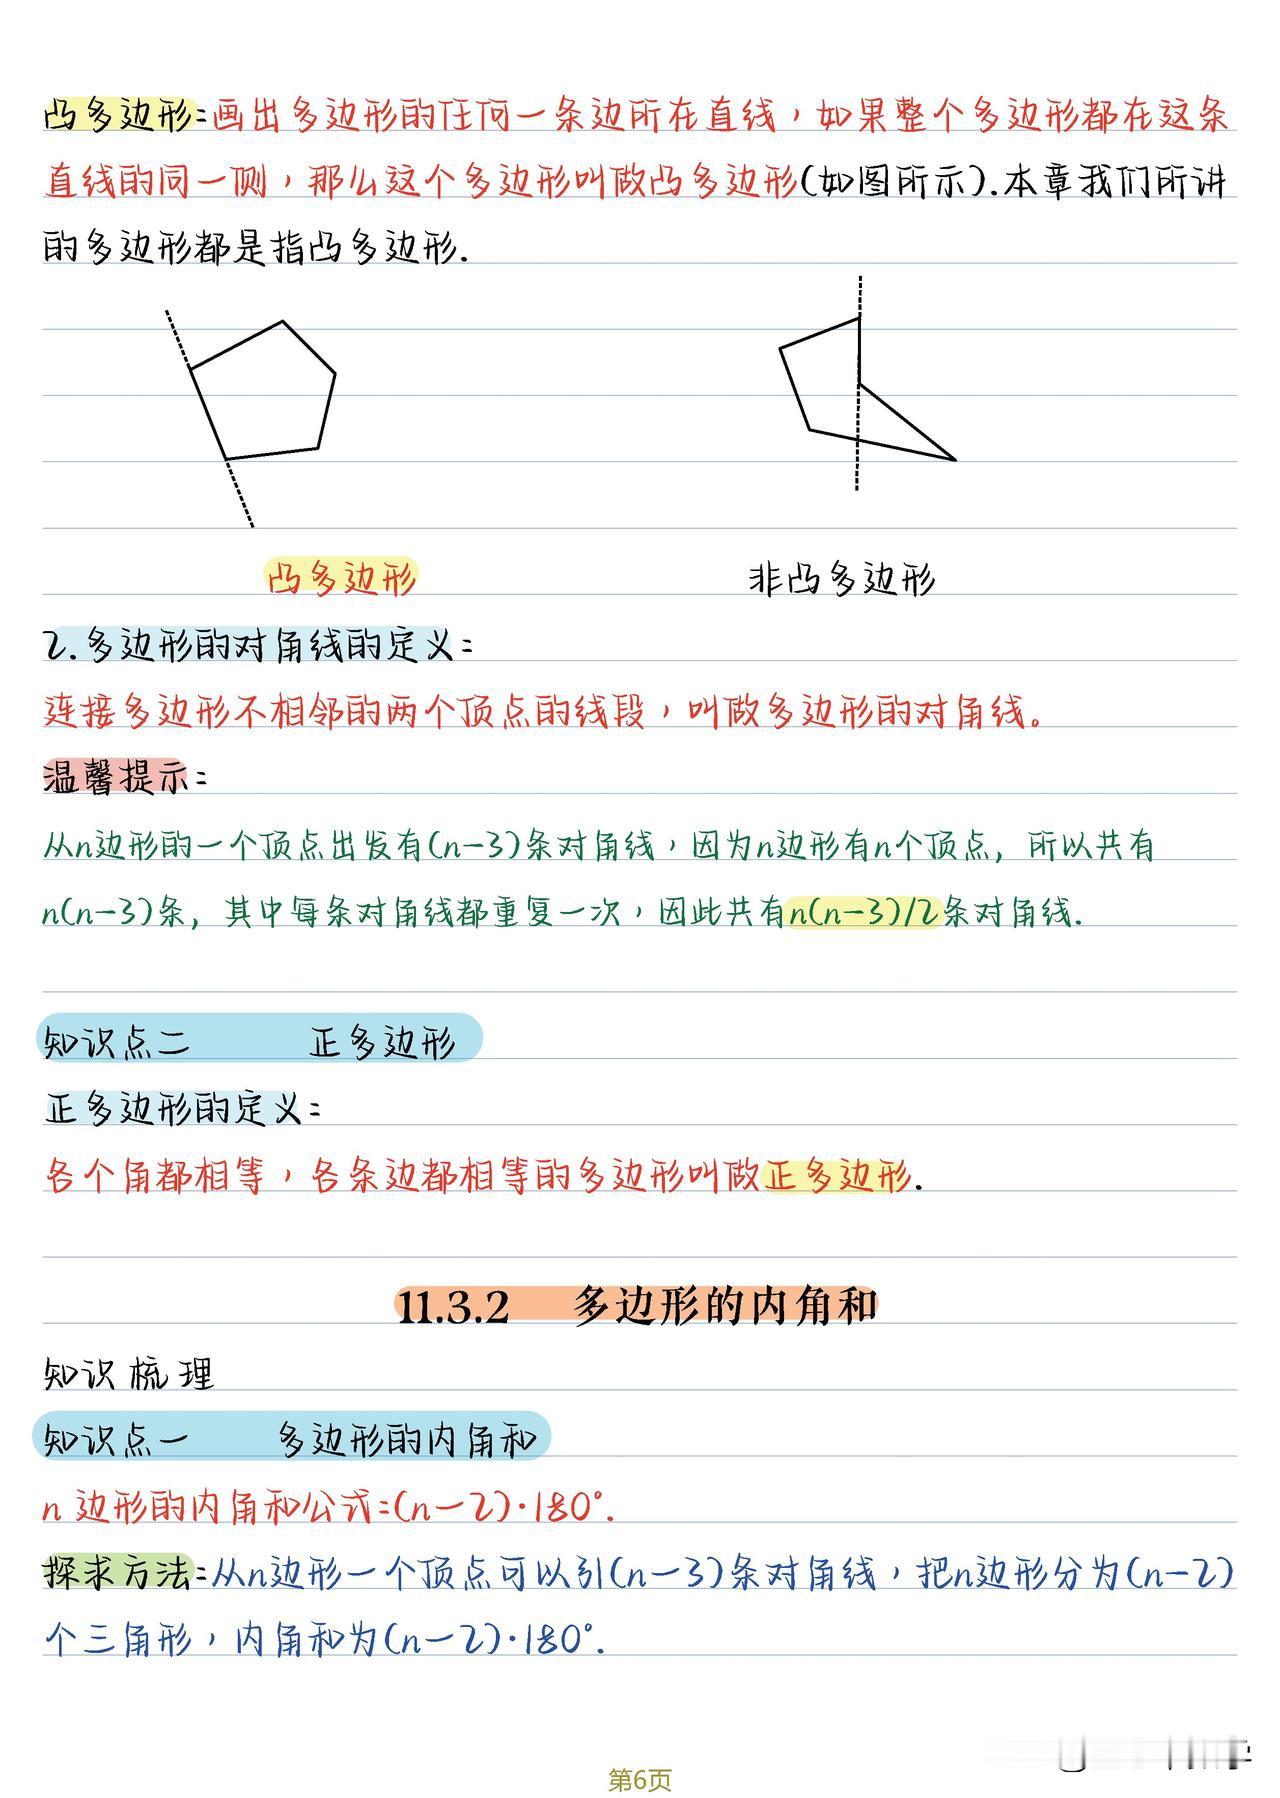 凸多边形:画出多边形的任何一条边所在直线，如果整个多边形都在这条
直线的同一侧，那么这个多边形叫做凸多边形(如图所示).本章我们所讲
的多边形都是指凸多边形.
凸多边形 非凸多边形
2.多边形的对角线的定义:
连接多边形不相邻的两个顶点的线段，叫做多边形的对角线。
温馨提示:
从n边形的一个顶点出发有(n-3)条对角线，因为n边形有n个顶点，所以共有
n(n-3)条，其中每条对角线都重复一次，因此共有n(n-3)/2条对角线.
知识点二 正多边形
正多边形的定义:
各个角都相等，各条边都相等的多边形叫做正多边形.
11.3.2 多边形的内角和
知识梳理
知识点一 多边形的内角和
n 边形的内角和公式:(n-2)·180°.
探求方法:从n边形一个顶点可以引(n-3)条对角线，把n边形分为(n-2)
个三角形，内角和为(n-2)·180°.
第6页